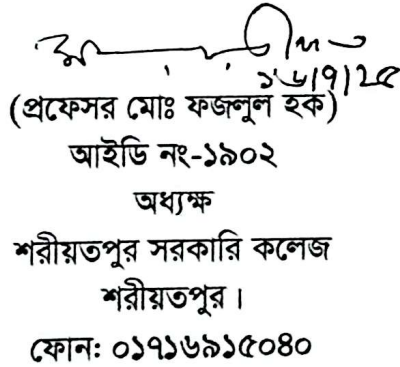 ১৬/৭/২৫
(প্রফেসর মোঃ ফজলুল হক)
আইডি নং-১৯০২
অধ্যক্ষ
শরীয়তপুর সরকারি কলেজ
শরীয়তপুর।
ফোন: ০১৭১৬৯১৫০৪০